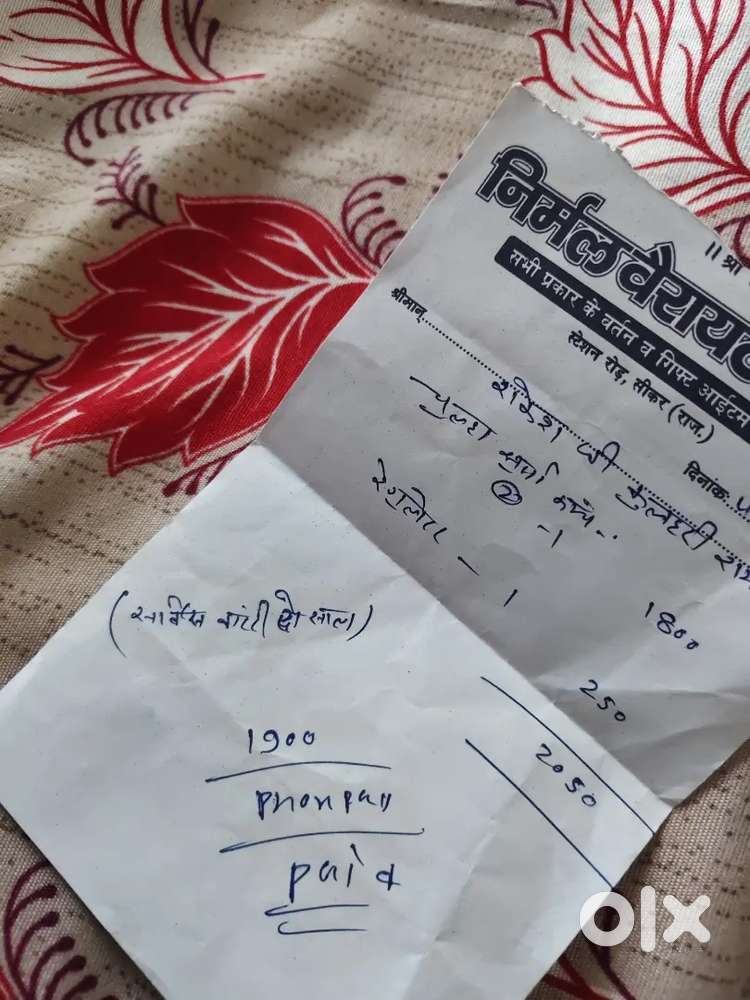 ॥ श्री
निर्मल वैरायट
सभी प्रकार के बर्तन व गिफ्ट आईटम
स्टेशन रोड, सीकर (राज.)
श्रीमान्
दिनांक
राकेश जी
चुल्हा
②
- 1
1800
रेगुलेटर - 1
250
2050
(सर्विस वारंटी दो साल)
1900
phonpay
paid
olx